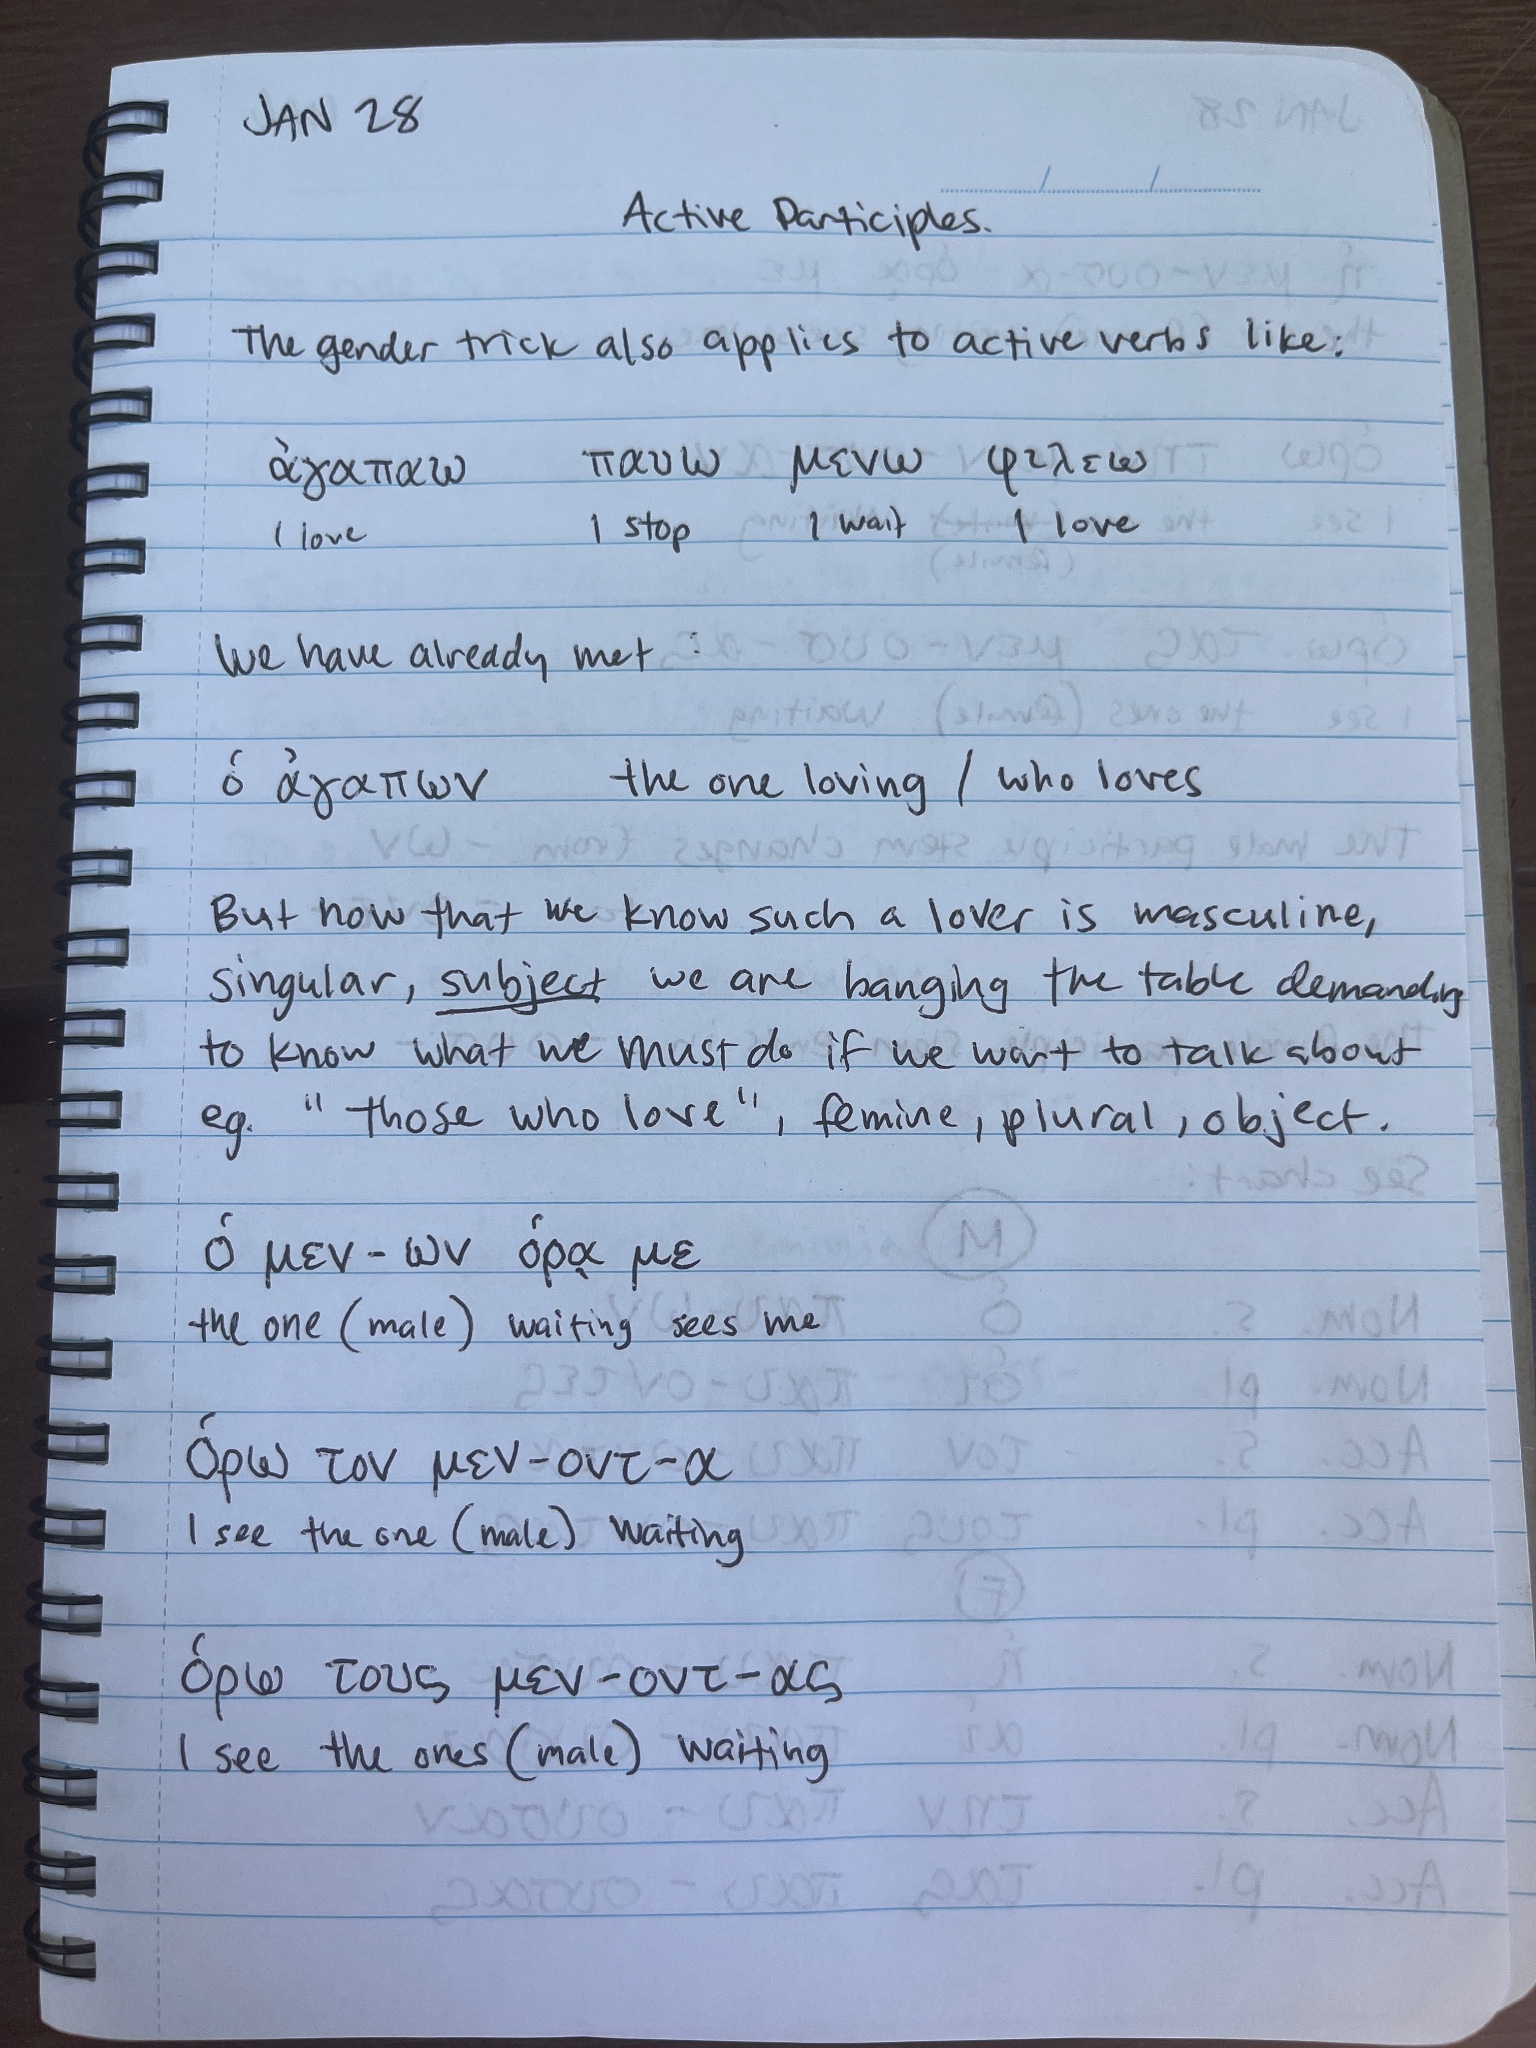 JAN 28
Active Participles.
The gender trick also applies to active verbs like:
ἀγαπαω παυω μενω φιλεω
I love I stop I wait I love
We have already met :
ὁ ἀγαπων the one loving / who loves
But now that we know such a lover is masculine,
singular, subject we are banging the table demanding
to know what we must do if we want to talk about
eg. "those who love", femine, plural, object.
Ὁ μεν-ων ὁρᾳ με
the one (male) waiting sees me
Ὁρω τον μεν-οντ-α
I see the one (male) waiting
Ὁρω τους μεν-οντ-ας
I see the ones (male) waiting